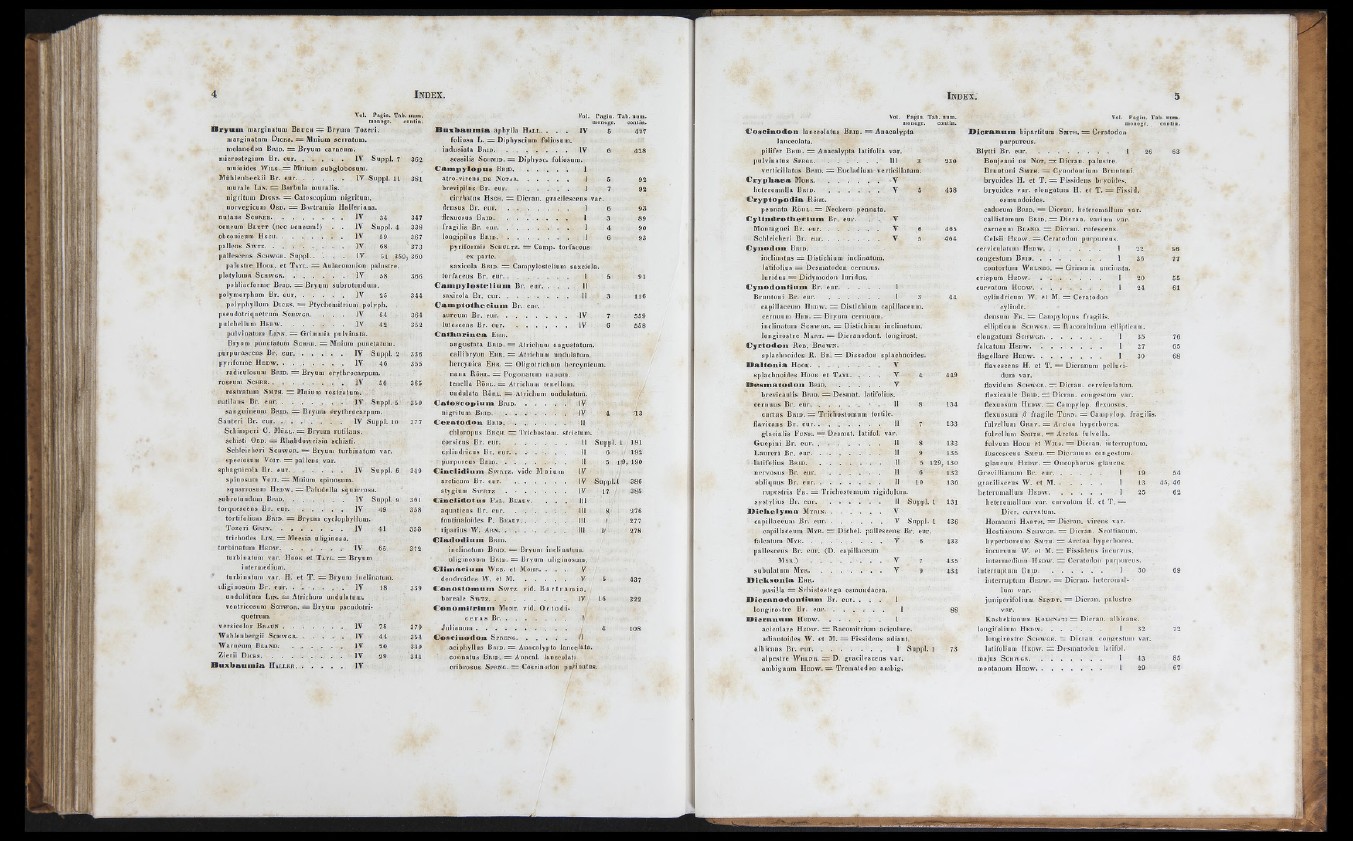 4 INDEX.
Vol. Pagin. Tab. num.
monogr. contin.
Bryum marginatum BRUCH = Bryum Tozeri.
marginatum DICKS. = Mnium serratum.
melanodon BRID. = Bryum carneum.
microstegium Br. eur. . . . . . . IV Suppl. 7 362
mnioides WILS. = Mnium subglobosum.
Mühlenbeckii Br. eur. . . . . . . IV Suppl. 11 381
murale LIN. = Barbula muralis.
nigritum DICKS. = Catoscopium nigritum.
norvegicum OED. = Bartramia Halleriana.
nutans SCHREB. . . . . . . . . IV 34 347
oeneum BLYTT (nec oeneum!) . . IV Suppl. 4 338
obconicum HSCH. . . . . . . . IV 59 367
pallens SWTZ. . . . . . . . . IV 68 373
pallescens SCHWGR. Suppl. . . . . IV 51 350, 360
palustre HOOK. et TAYL. = Aulacomnion palustre.
platyloma SCHWGR. . . . . . . . IV 58 366
pohliaeforme BRID. = Bryum subrotundum.
polymorphum Br. eur. . . . . . . IV 25 344
polyphyllum DICKS. = Ptychomitrium polyph.
pseudotriquetrum SCHWGR. . . . . IV 54 364
pulchellum HEDW. . . . . . . . IV 42 352
pulvinatum LINN. = Grimmia pulvinata.
Bryum punctatum SCHRB. = Mnium punctatum.
purpurascens Br. eur. . . . . . . IV Suppl. 2 336
pyriforme HEDW. . . . . . . . IV 46 355
radiculosum BRID. = Bryum erythrocarpum.
roseum SCHRB. . . . . . . . . IV 56 365
rostratum SMTH. = Mnium rostratum.
rutilans Br. eur. . . . . . . . . IV Suppl. 5 359
sanguineum BRID. = Bryum erythrocarpum.
Sauteri Br. eur. . . . . . . . . IV Suppl. 10 377
Schimperi C. MÜLL. = Bryum rutilans.
schisti OED. = Rhabdoweisia schisti.
Schleicheri SCHWGR. = Bryum turbinatum var.
speciosum VOIT. = pallens var.
sphagnicola Br. eur. . . . . . . IV Suppl. 6 349
spinosum VOIT. = Mnium spinosum.
squarrosum HEDW. = Paludella squarrosa.
subrotundum BRID. . . . . . . IV Suppl. 9 361
torquescens Br. eur. . . . . . . IV 49 358
tortifolium BRID. = Bryum cyclophyllum.
Tozeri GREV. . . . . . . . . IV 41 353
trichodes LIN. = Meesia uliginosa.
turbinatum HEDW. . . . . . . . IV 65 372
turbinatum var. HOOK et TAYL. = Bryum
intermedium.
turbinatum var. H. et T. = Bryum inclinatum.
uliginosum Br. eur. . . . . . . . IV 18 339
undulatum LIN. = Atrichum undulatum.
ventricosum SCHWGR. = Bryum pseudotri-
quetrum.
versicolor BRAUN . . . . . . . IV 75 379
Wahlenbergii SCHWGR. . . . . . IV 44 354
Warneum BLAND. . . . . . . . IV 20
Zierii DICKS. . . . . . . . . IV 29 341
Buxbaumia HALLER. . . . . . IV
Vol. Pagin. Tab. num.
monogr. contin.
Buxbaumia aphylla HALL. . . . IV 5 427
foliosa L. = Diphyscium foliosum.
indusiata BRID. . . . . . . . IV 6 428
sessilis SCHMID. = Diphysc. foliosum.
Campylopus BRID. . . . . . . I
atro-virens DE NOTAR. . . . . . I 5 92
brevipilus Br. eur. . . . . . . . I 7 92
cirrhatus HSCH. = Dicran. gracilescens var.
densus Br. eur. . . . . . . . . I 6 93
flexuosus BRID. . . . . . . . . I 3 89
fragilis Br. eur. . . . . . . . . I 4 90
longipilus BRID. . . . . . . . . I 6 95
pyriformis SCHULTZ. = Camp. torfaceus
ex parte.
saxicola BRID. = Campylostelium saxicola.
torfaceus Br. eur. . . . . . . . I 5 91
Campylostelium Br. eur. . . . II
saxicola Br. eur. . . . . . . . . II 3 116
Camptothecium Br. eur.
aureum Br. eur. . . . . . . . IV 7 559
lutescens Br. eur. . . . . . . . IV 6 558
Catharinea EHR.
angustata BRID. = Atrichum angustatum.
callibryon EHR. = Atrichum undulatum.
hercynica EHR. = Oligotrichum hercynicum.
nana RÖHL. = Pogonatum nanum.
tenella RÖHL. = Atrichum tenellum.
undulata RÖHL. = Atrichum undulatum.
Catoscopium BRID. . . . . . IV
nigritum BRID. . . . . . . . . IV 4 13
Ceratodon BRID. . . . . . . . II
chloropus BRCH. = Trichostom. strictum.
corsicus Br. eur. . . . . . . . . II Suppl. 1 191
cylindricus Br. eur. . . . . . . . II 6 192
purpureus BRID. . . . . . . . . II 5 189, 190
Cinclidium SWRTZ. vide Mnium IV
arcticum Br. eur. . . . . . . . IV Suppl. 1 386
stygium SWRTZ . . . . . . . IV 17 385
Cinclidotus PAL. BEAUV. . . . III
aquaticus Br. eur. . . . . . . . III 8 276
fontinaloides P. BEAUV. . . . . III 277
riparius W. ARN. . . . . . . . III 278
Cladodium BRID.
inclinatum BRID. = Bryum inclinatum.
uliginosum BRID. = Bryum uliginosum.
Climacium WEB. et MOHR. . . . V
dendroides W. et M. . . . . . . V 5 437
Conostomum SWTZ. vid. Bartramia,
boreale SWTZ. . . . . . . . . IV 14 322
Conomitrium MONT. vid. Octodi-
ceras BR. . . . . . . . . .
Julianum . . . . . . . . . . 4 108
Coscinodon SPRENG. . . . . .
aciphyllus BRID. = Anacalypta lanceolata.
connatus BRID. = Anacal. lanceolata
cribrosus SPRNG. = Coscinodon pulvinatus.
INDEX. 5
Vol. Pagin. Tab. num.
monogr. contin.
Coscinodon lanceolatus BRID. = Anacalypta
lanceolata.
pilifer BRID. = Anacalypta latifolia var.
pulvinatus SPRNG. . . . . . . . III 3 230
verticillatus BRID. = Eucladium verticillatum.
Cryphaea MOHR. . . . . . . V
heteromalla BRID. . . . . . . . V 5 438
Cryptopodia RÖHL.
pennata RÖHL. = Neckera pennata.
Cylindrothecium Br. eur. . . . V
Montagnei Br. eur. . . . . . . . V 6 465
Schleicheri Br. eur. . . . . . . . V 5 464
Cynodon BRID.
inclinatus = Distichium inclinatum.
latifolius = Desmatodon cernuus.
luridus = Didymodon luridus.
Cynodontium Br. eur. . . . . . I
Bruntoni Br. eur. . . . . . . . I 3 44
capillaceum HEDW. = Distichium capillaceum.
cernuum HED. = Bryum cernuum.
inclinatum SCHWGR. = Distichium inclinatum.
longirostre MART. = Dicranodont. longirost.
Cyrtodon ROB. BROWN.
splachnoides R. BR. = Dissodon splachnoides.
Daltonia HOOK. . . . . . . . V
splachnoides HOOK et TAYL. . . . V 4 449
Desmatodon BRID. . . . . . . V
brevicaulis BRID. = Desmat. latifolius.
cernuus Br. eur. . . . . . . . . II 8 134
curtus BRID. = Trichostomum tortile.
flavicans Br. eur. . . . . . . . II 7 133
glacialis FUNK. = Desmat. latifol. var.
Guepini Br. eur. . . . . . . . . II 8 133
Laureri Br. eur. . . . . . . . . II 9 135
latifolius BRID. . . . . . . . . II 5 129, 130
nervosus Br. eur. . . . . . . . II 6 132
obliquus Br. eur. . . . . . . . . II 10 136
rupestris FK. = Trichostomum rigidulum.
systylius Br. eur. . . . . . . . II Suppl. 1 131
Dichelyma MYRIN. . . . . . . V
capillaceum Br. eur. . . . . . . V Suppl. 1 436
capillaceum MYR. = Dichel. pallescens Br. eur.
falcatum MYR. . . . . . . . . V 6 433
pallescens Br. eur. (D. capillaceum
MYR.) . . . . . . . . . . V 7 435
subulatum MYR. . . . . . . . V 9 434
Dicksonia EHR.
pusilla = Schistostega osmundacea.
Dicranodontium Br. eur. . . . I
longirostre Br. eur. . . . . . . . I 88
Dicranum HEDW. . . . . . . I
aciculare HEDW. = Racomitrium aciculare.
adiantoides W. et M. = Fissidens adiant.
albicans Br. eur. . . . . . . . I Suppl. 1 73
alpestre WHLNB. = D. gracilescens var.
ambiguum HEDW. = Trematodon ambig.
Vol. Pagin. Tab. num.
monogr. contin.
Dicranum bipartitum SMTH. = Ceratodon
purpureus.
Blytti Br. eur. . . . . . . . . I 26 63
Bonjeani DE NOT. = Dicran. palustre.
Bruntoni SMTH. = Cynodontium Bruntoni.
bryoides H. et T. = Fissidens bryoides.
bryoides var. elongatus H. et T. = Fissid.
osmundoides.
cadorum BRID. = Dicran. heteromallum var.
callistomum BRID. = Dicran. varium var.
carneum BLAND. = Dicran. rufescens.
Celsii HEDW. = Ceratodon purpureus.
cerviculatum HEDW. . . . . . . I 22 56
congestum BRID. . . . . . . . I 36 77
contortum WHLNBG. = Grimmia uncinata.
crispum HEDW. . . . . . . . I 20 55
curvatum HEDW. . . . . . . . I 24 61
cylindricum W. et M. = Ceratodon
cylindr.
densum FK. = Campylopus fragilis.
ellipticum SCHWGR. = Racomitrium ellipticum.
elongatum SCHWGR. . . . . . . I 35 76
falcatum HEDW. . . . . . . . I 27 65
flagellare HEDW. . . . . . . . I 30 68
flavescens H. et T. = Dicranum pelluci-
dum var.
flavidum SCHWGR. = Dicran. cerviculatum.
flexicaule BRID. = Dicran. congestum var.
flexuosum HEDW. = Campylop. flexuosus.
flexuosum β fragile TURN. = Campylop. fragilis.
fulvellum GREV. = Arctoa hyperborea.
fulvellum SMTH. = Arctoa fulvella.
fulvum HOOK et WILS. = Dicran. interruptum.
fuscescens SMTH. = Dicranum congestum.
glaucum HEDW. = Oncophorus glaucus.
Grevillianum Br. eur. . . . . . . I 19 54
gracilescens W. et M. . . . . . . I 13 45, 46
heteromallum HEDW. . . . . . . I 25 62
heteromallum var. curvatum H. et T. =
Dicr. curvatum.
Homanni HARTM. = Dicran. virens var.
Hostianum SCHWGR. = Dicran. Scottianum.
hyperboreum SMTH. = Arctoa hyperborea.
incurvum W. et M. = Fissidens incurvus.
intermedium HEDW. = Ceratodon purpureus.
interruptum BRID. . . . . . . . I 30 68
interruptum HEDW. = Dicran. heteromal-
lum var.
juniperifolium SENDT. = Dicran. palustre
var.
= Dicran. albicans.
longifolium HEDW. . . . . . . . I 32 72
longirostre SCHWGR. = Dicran. congestum var.
latifolium HEDW. = Desmatodon latifol.
majus SCHWGR. . . . . . . . . I 43 85
montanum HEDW. . . . . . . . I 29 67